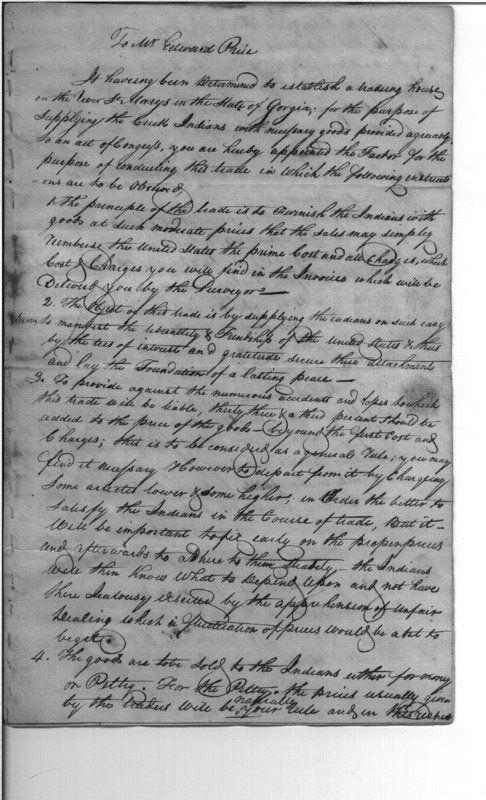 To Mr. Edward Price
It haveing been determined to establish a trading house
on the River St. Marys in the State of Gorgia; for the purpose of
Supplying the Creek Indians with necessary goods provided agreeably
to an act of Congress, you are hereby appointed the Factor for the
purpose of conducting this trade in which the following instructi
-ons are to be observed,
1. the principle of the trade is to furnish the Indians with
goods at such moderate prices that the sales may simply
reimburse the United States the prime Cost and all Charges, which
Cost & Charges you will find in the Invoices which will be
Delivered you by the Purveyor—
2. The object of this trade is by supplying the indians on such easy
terms to manifest the liberallity & Friendship of the United States & thus
by the ties of interest and gratitude secure their attachment
and lay the Foundation of a lasting peace—
3. To provide against the numerous accidents and losses to which
this trade will be liable, thirty three & a third per cent should be
added to the price of the goods beyound the first Cost and
Charges; this is to be considered as a general Rule; you may
find it necessary However to depart from it by Chargeing
Some articles lower & some higher, in Order the better to
Satisfy the Indians in the Course of trade, but it
will be important to fix early on the proper prices
and afterwards to adhere to them Steadily—the Indians
will then Know what to Depend upon and not have
there Jealousy excited by the apprehension of unfair
Dealing which a fluctuation of prices would be apt to
beget.
4. The goods are to be Sold to the Indians either for money
or Peltry. For the Peltry, the prices usually given
by the traders will be naturally your rule and in this respect